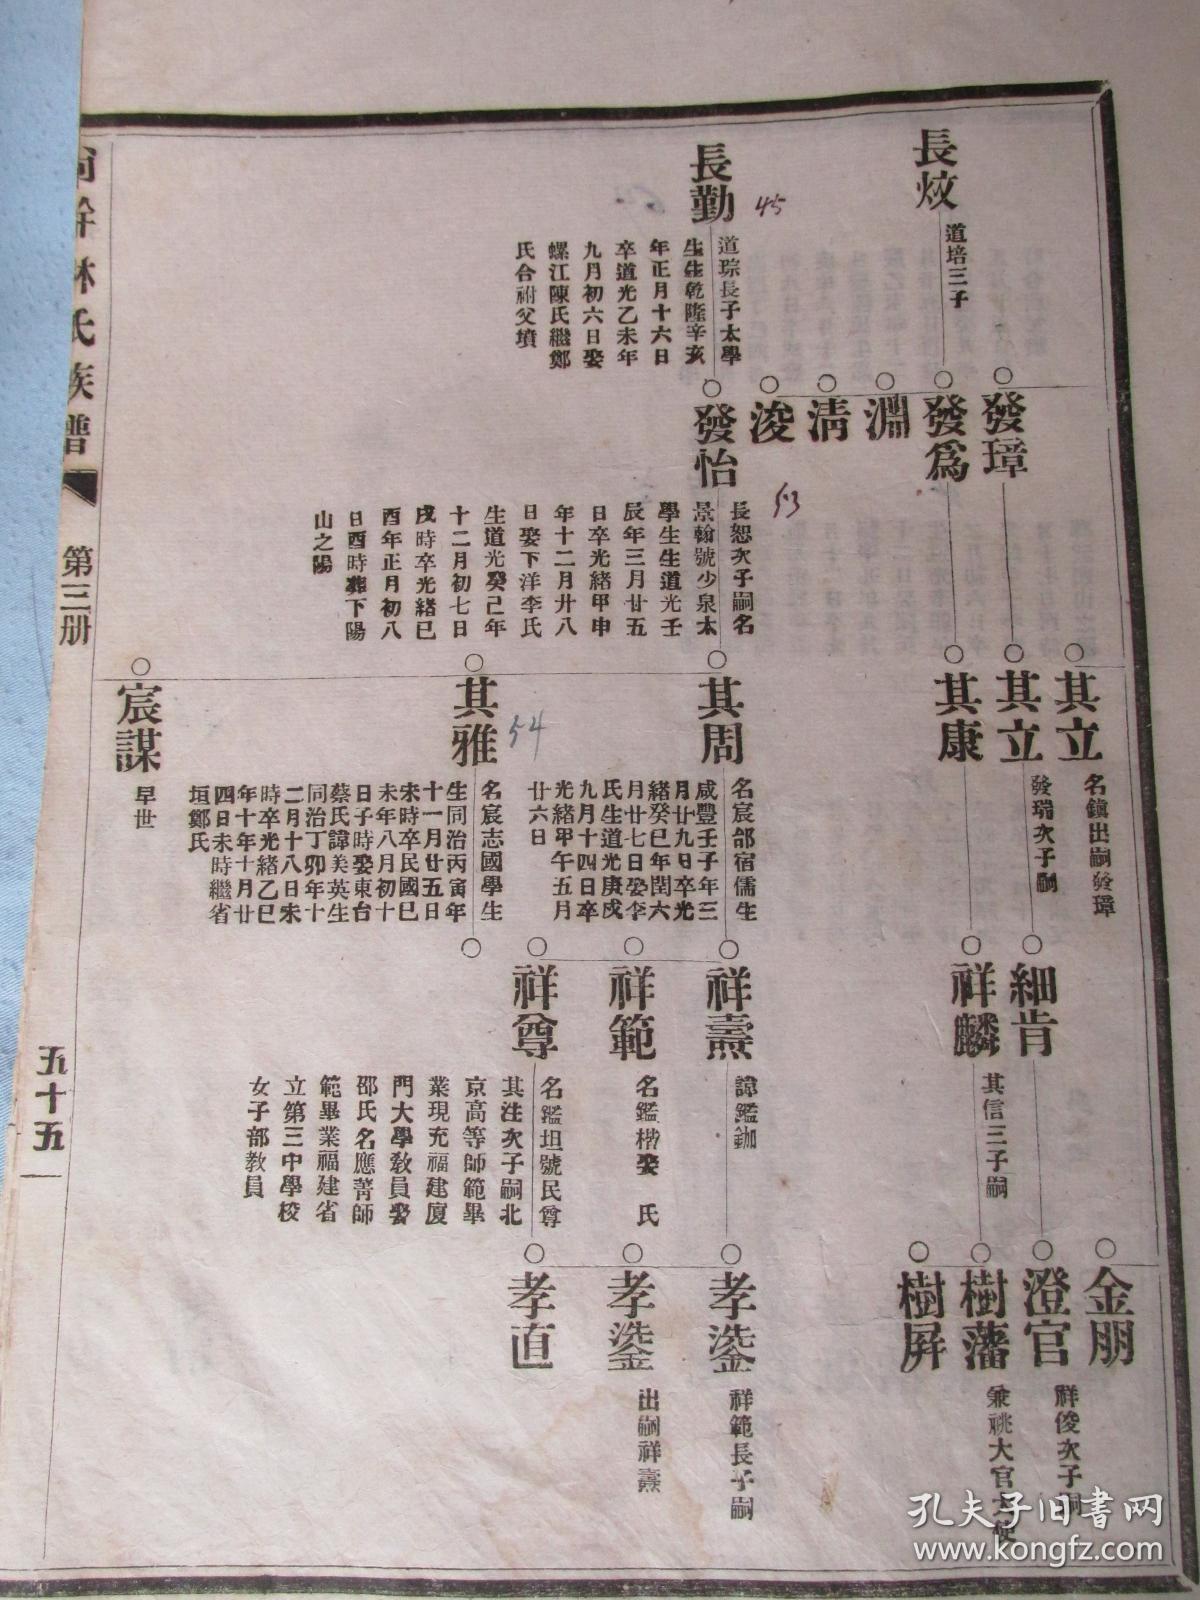 長炆
道培三子
長勤
45
道琮長子太學
生生乾隆辛亥
年正月十六日
卒道光乙未年
九月初六日娶
螺江陳氏繼鄭
氏合祔父墳
發璋
發為
淵
清
浚
發怡
53
長恕次子嗣名
景翰號少泉太
學生生道光壬
辰年三月廿五
日卒光緒甲申
年十二月廾八
日娶下洋李氏
生道光癸己年
十二月初七日
戌時卒光緒巳
酉年正月初八
日酉時葬下陽
山之陽
其立
名鎮出嗣發璋
其立
發瑞次子嗣
其康
其周
名宸郃宿儒生
咸豐壬子年三
月廿九日卒光
緒癸巳年閏六
月廿七日娶李
氏生道光庚戌
九月十四日卒
光緒甲午五月
廿六日
其雅
54
名宸志國學生
生同治丙寅年
十一月廿五日
未時卒民國巳
未年八月初十
日子時娶東台
蔡氏諱美英生
同治丁卯年十
二月十八日未
時卒光緒乙巳
年十年十月廿
四日未時繼省
垣鄭氏
宸謀
早世
細肯
祥麟
其信三子嗣
祥燾
諱鑑鉫
祥範
名鑑楷娶 氏
祥尊
名鑑坦號民尊
其泩次子嗣北
京高等師範畢
業現充福建廈
門大學教員娶
邵氏名應菁師
範畢業福建省
立第三中學校
女子部教員
金朋
澄官
祥俊次子嗣
樹藩
兼祧大官大使
樹屏
孝鎏
祥範長子嗣
孝鎏
出嗣祥燾
孝直
林氏族譜
第三册
五十五
孔夫子旧书网
www.kongfz.com